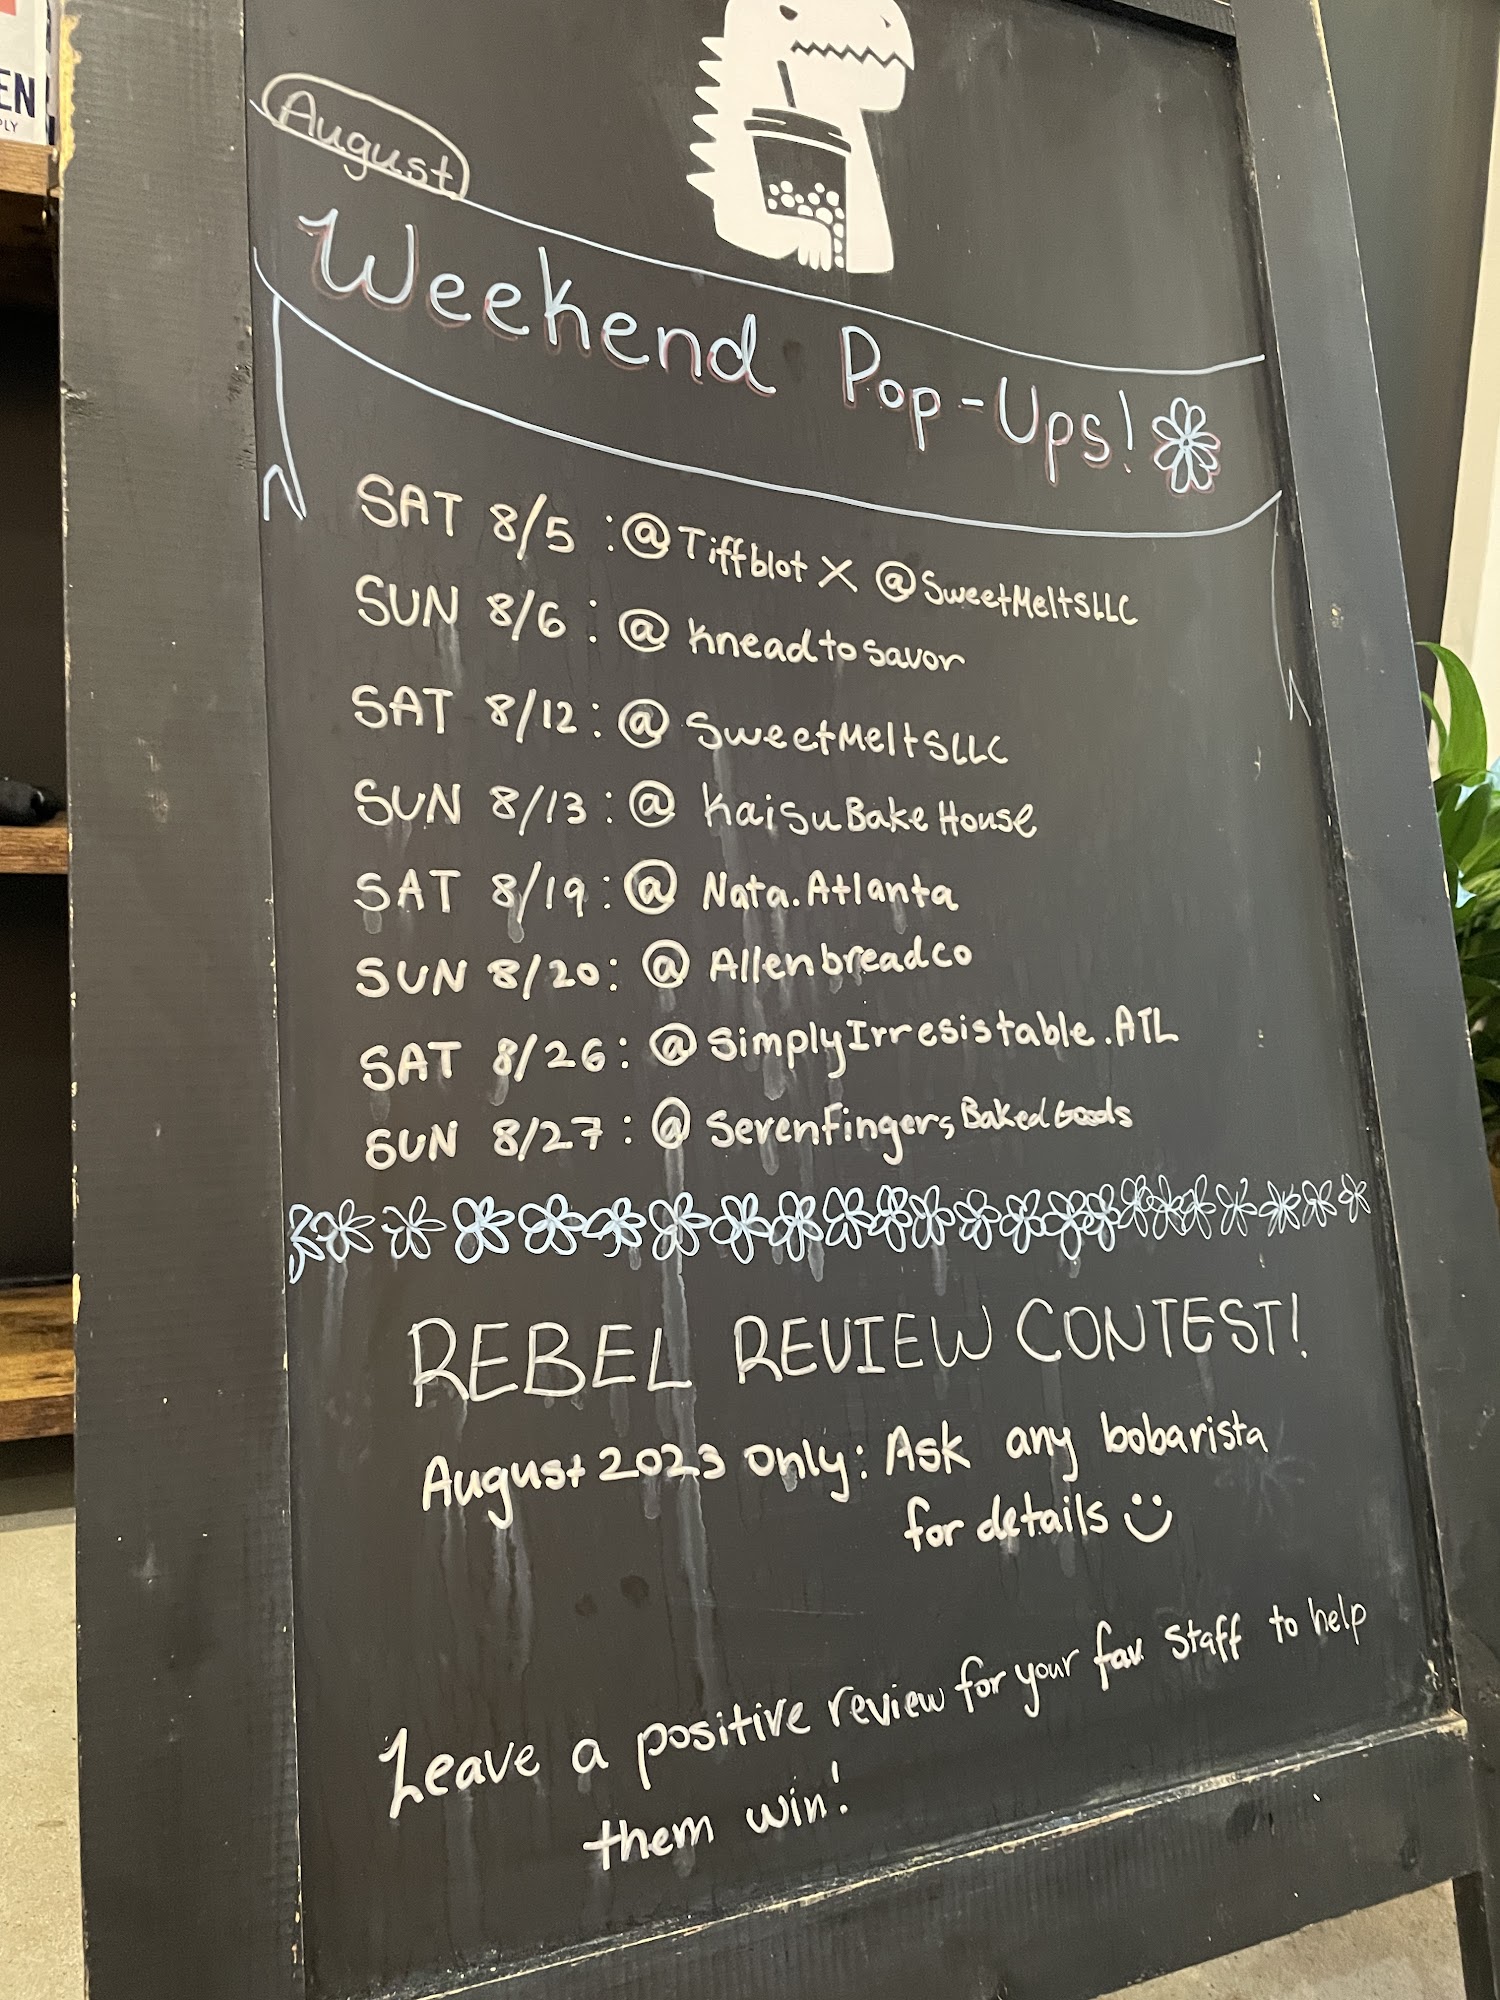 EN
PLY
August
Weekend Pop-Ups!
SAT 8/5 : @Tiffblot X @SweetMeltSLLC
SUN 8/6 : @ Kneadtosavor
SAT 8/12 : @ SweetMeltSLLC
SUN 8/13 : @ KaisuBakeHouse
SAT 8/19 : @ Nata.Atlanta
SUN 8/20 : @ Allenbreadco
SAT 8/26 : @SimplyIrresistable.ATL
SUN 8/27 : @ SevenFingersBakedGoods
REBEL REVIEW CONTEST!
August 2023 Only: Ask any bobarista
for details
Leave a positive review for your fav staff to help
them win!